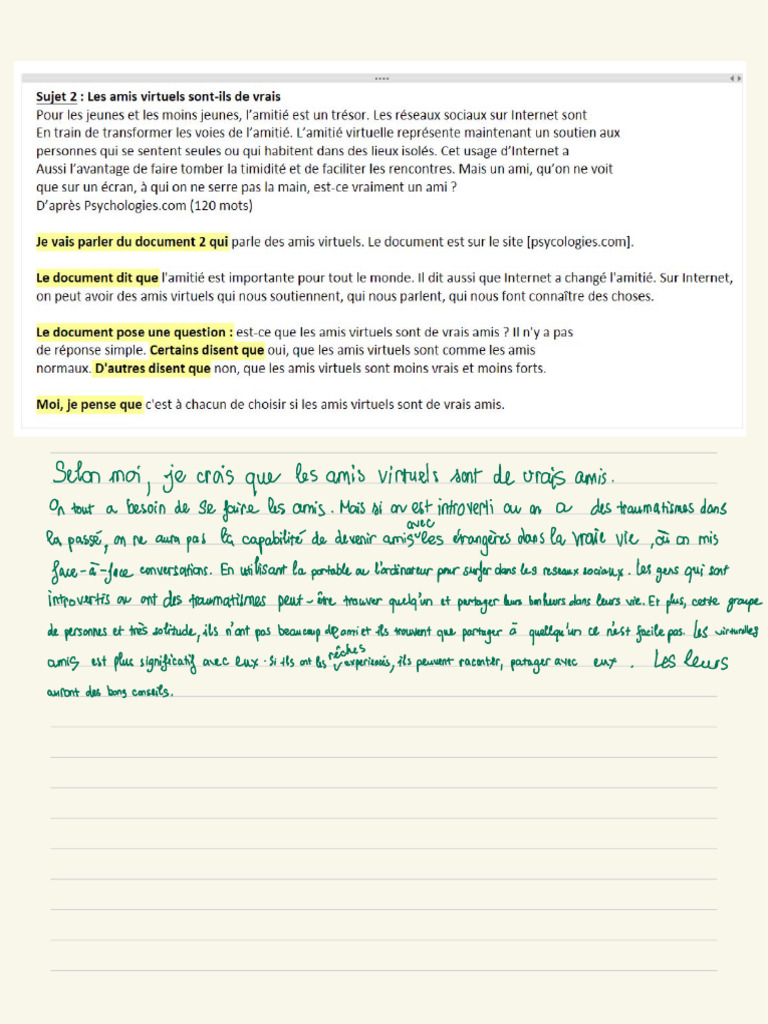 Sujet 2 : Les amis virtuels sont-ils de vrais
Pour les jeunes et les moins jeunes, l'amitié est un trésor. Les réseaux sociaux sur Internet sont
En train de transformer les voies de l'amitié. L'amitié virtuelle représente maintenant un soutien aux
personnes qui se sentent seules ou qui habitent dans des lieux isolés. Cet usage d'Internet a
Aussi l'avantage de faire tomber la timidité et de faciliter les rencontres. Mais un ami, qu'on ne voit
que sur un écran, à qui on ne serre pas la main, est-ce vraiment un ami ?
D'après Psychologies.com (120 mots)
Je vais parler du document 2 qui parle des amis virtuels. Le document est sur le site [psycologies.com].
Le document dit que l'amitié est importante pour tout le monde. Il dit aussi que Internet a changé l'amitié. Sur Internet,
on peut avoir des amis virtuels qui nous soutiennent, qui nous parlent, qui nous font connaître des choses.
Le document pose une question : est-ce que les amis virtuels sont de vrais amis ? Il n'y a pas
de réponse simple. Certains disent que oui, que les amis virtuels sont comme les amis
normaux. D'autres disent que non, que les amis virtuels sont moins vrais et moins forts.
Moi, je pense que c'est à chacun de choisir si les amis virtuels sont de vrais amis.
Selon moi, je crois que les amis virtuels sont de vrais amis.
On tout a besoin de se faire les amis. Mais si on est introverti ou on a des traumatismes dans
la passé, on ne aura pas la capabilité de devenir amis avec les étrangères dans la vraie vie, où on mis
face-à-face conversations. En utilisant la portable ou l'ordinateur pour surfer dans les reseaux sociaux. Les gens qui sont
introvertis ou ont des traumatismes peut-être trouver quelqu'un et partager leurs bonheurs dans leurs vie. Et plus, cette groupe
de personnes et très solitude, ils n'ont pas beaucoup de ami et ils trouvent que partager à quellqu'un ce n'est facile pas. Les virtuelles
amis est plus significatif avec eux. Si ils ont les rêches experiences, ils peuvent raconter, patager avec eux. Les leurs
auront des bons conseils.